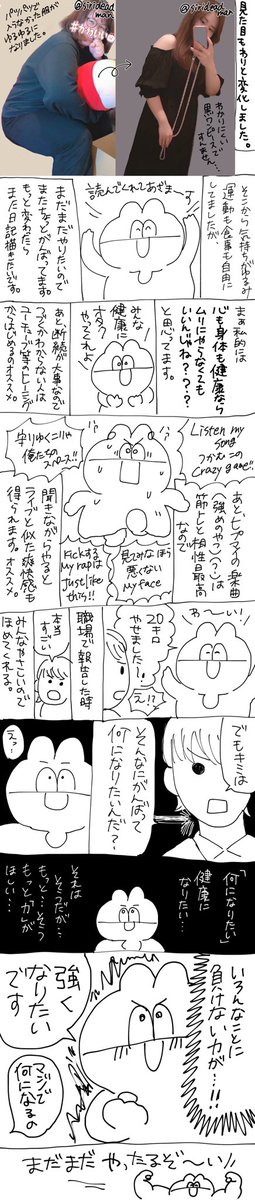 見た目もわりと変化しました。
@siridead
man
#かわいい
パッツパツで
ぅなかった服が
ゆるゆるに
なりました。
@siridead
man
わかりにくい
黒ワンピースで
すみません…
そこから気持ちがゆるみ
運動も食事も自由に
してましたが
読んでくれてあざまーす
まだまだやりたいので
またこなどがんばってます。
もっと変わったら
また日記描きたいです。
まぁ私的には
心も身体も健康なら
ムリにやらなくても
いいんじゃね???
と思ってます。
みんな
健康に
オタク
やってくれよ
あと継続が大事なので
つづくかわからない人は
ユーチューブ等のトレーニング
からはじめるのオススメ
Listen my
song
つかむこの
Crazy game!!
守りゆくこりゃ
俺たちのスペース!!
見てみな ほら
悪くない
my face
Kickする
my rapは
just like
this!!
あと、ヒプマイの楽曲
(強めのやつ)(?)は
筋トレと相性最高
なので
聞きながらやると
ライブと似た爽快感も
得られます。オススメ。
わーい!
20キロ
やせましたー!
え!?
職場で報告した時
本当
すごい
みんなやさしいので
ほめてくれる。
でもキミは
そんなにがんばって
何になりたいんだ?
えっ
「何になりたい」
健康に
なりたい…
それは
そうだが…
もっと…そう
もっと「力」が
ほしい…
いろんなことに
負けない力が…!!
強く
なりたい
です
マジで
何になるの
まだまだ やったるぞ〜い!!